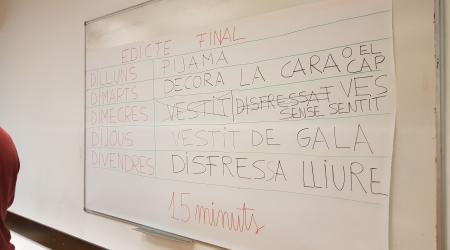 EDICTE FINAL
DILLUNS PIJAMA
DIMARTS DECORA LA CARA O EL CAP
DIMECRES VESTIT DISFRESSA'T VES SENSE SENTIT
DIJOUS VESTIT DE GALA
DIVENDRES DISFRESSA LLIURE
15 minuts